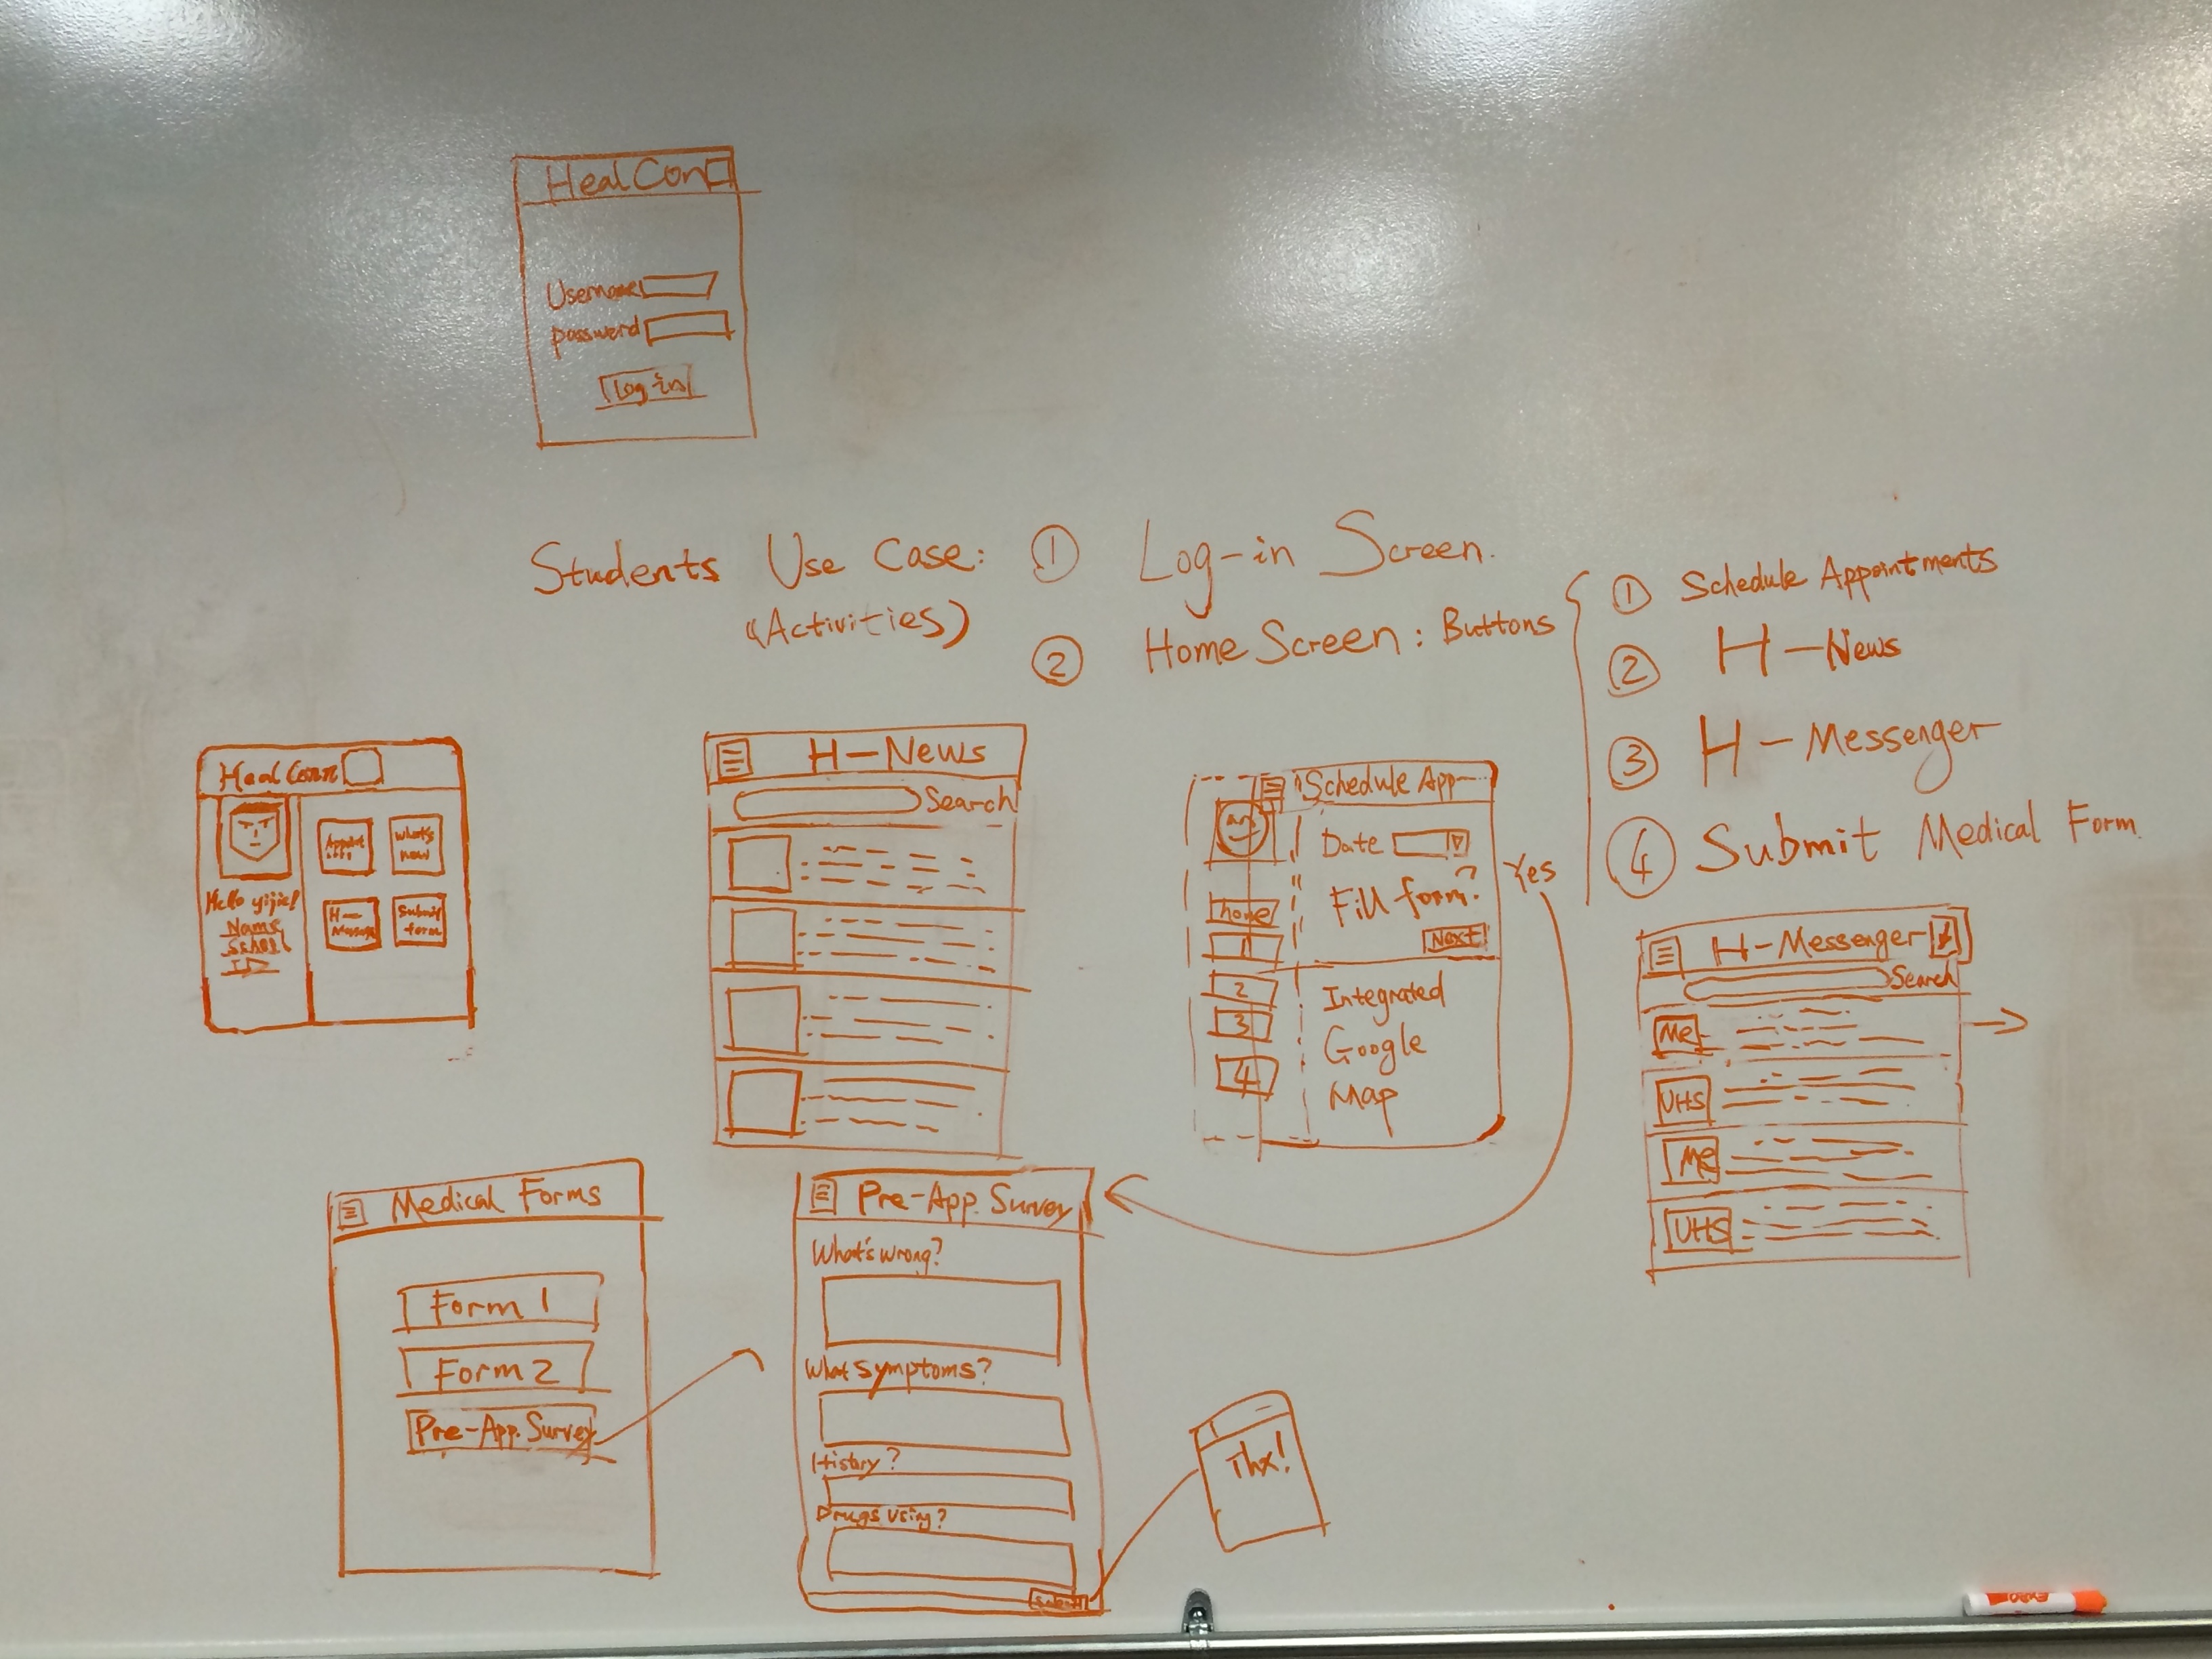 Heal Conn
Username
password
Log in
Students Use Case:
(Activities)
① Log-in Screen.
② Home Screen: Buttons
① Schedule Appointments
② H-News
③ H-Messenger
④ Submit Medical Form
Heal Conn
Hello yijie!
Name
School
ID
What's
new
H-
Submit
form
H-News
Search
Schedule App
Date
Fill form?
Next
Yes
home
1
2
3
4
Integrated
Google
Map
H-Messenger
Search
Me
UHS
Me
UHS
Medical Forms
Form 1
Form 2
Pre-App. Survey
Pre-App. Survey
What's wrong?
What symptoms?
History?
Drugs using?
Submit
Thx!
EXPO